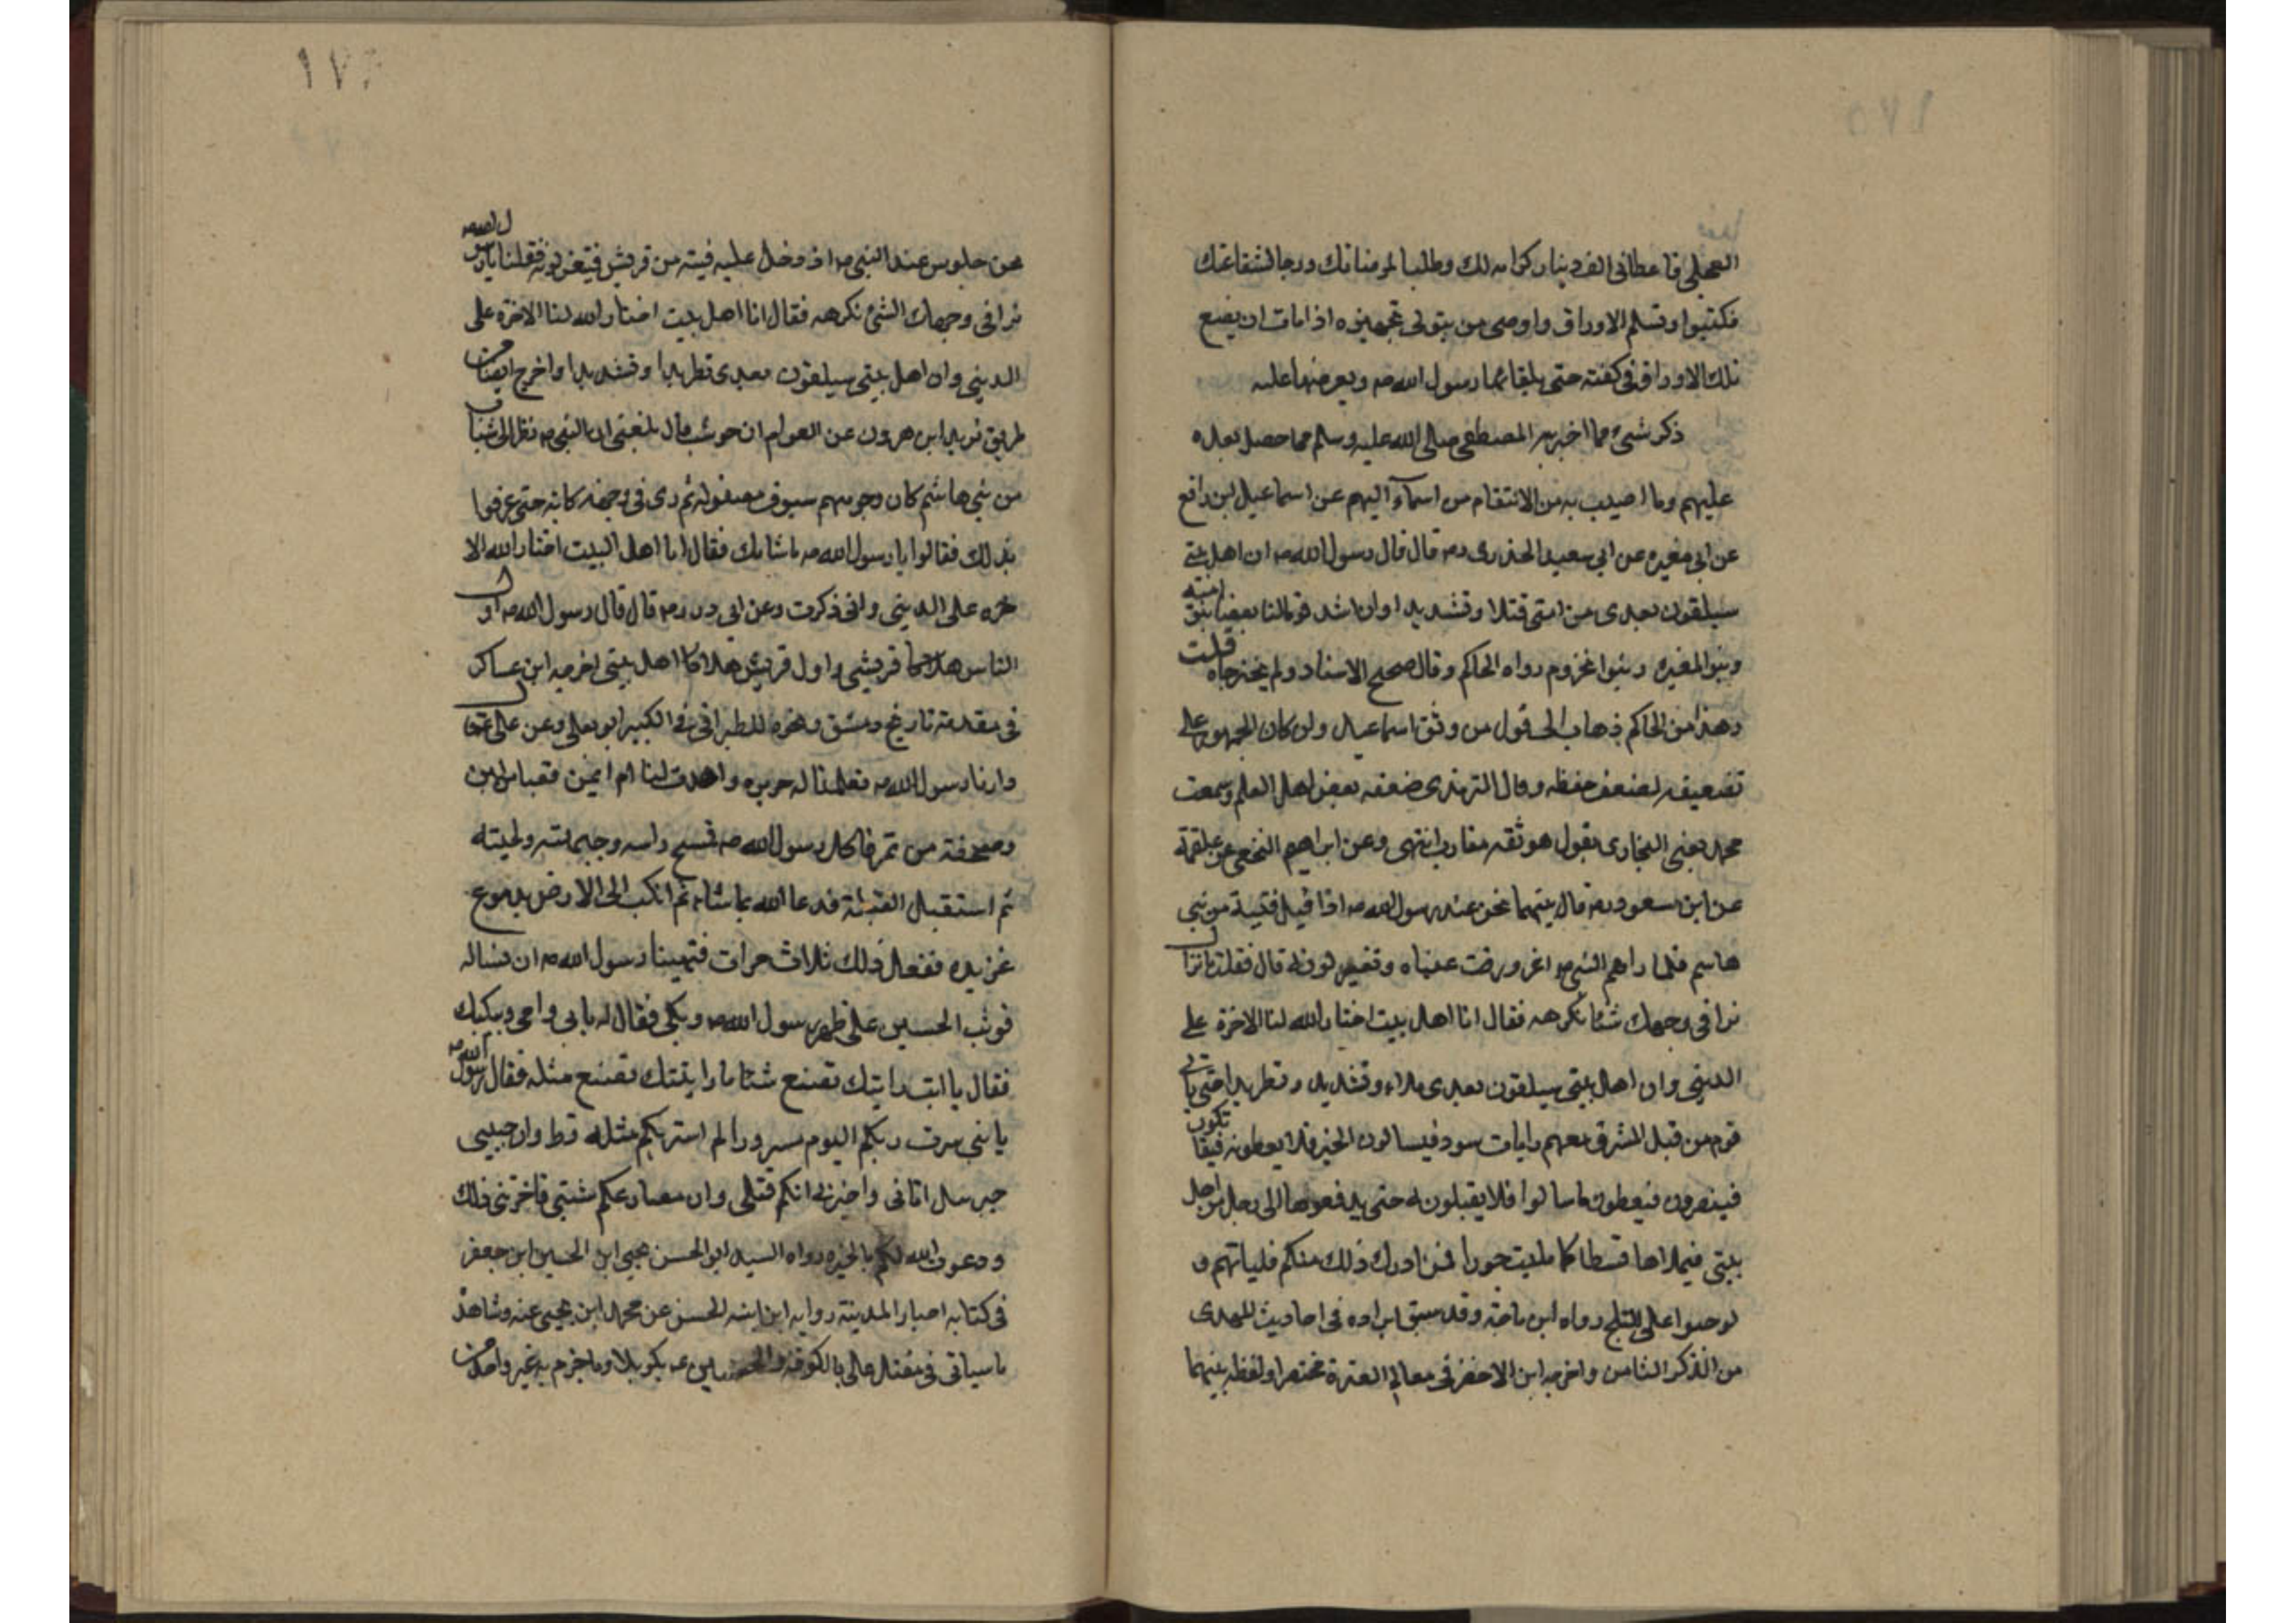 العجلي فاعطاني الف دينار كرامه لك وطلبا لمرضاتك ورجا لشفاعتك
فكتبوا وتسلم الاوراق واوصى من يتولى تجهيزه اذا مات ان يضع
تلك الاوراق في كفنه حتى يلقا بها رسول الله صه ويعرضها عليه
ذكر شيء مما اخبر به المصطفى صلى الله عليه وسلم مما حصل بعده
عليهم وما اصيب به من الانتقام من اسآء اليهم عن اسماعيل ابن رافع
عن ابي سعيد الخدرى رضه قال قال رسول الله صه ان اهل بيتي
سيلقون بعدى من امتى قتلا وتشديدا وان اشد قومنا لنا بغضا بنو اميّه
وبنو المغيره وبنوا مخزوم رواه الحاكم وقال صحيح الاسناد ولم يخرجاه قلت
وهذا من الحاكم ذهاب الى قول من وثق اسماعيل وان كان الجمهور على
تضعيفه لضعف حفظه وقال الترمذى ضعفه بعض اهل العلم وسمعت
محمد يعني البخارى يقول هو ثقه مقارب انتهى وعن ابراهيم النخعي عن علقمة
عن ابن مسعود رضه قال بينهما نحن عند رسول الله صه اذا قبل فتية من بني
هاشم فلما راهم النبي صه اغرورقت عيناه وتغير لونه قال فقلت ما نزال
نرا في وجهك شئا نكرهه فقال انا اهل بيت اختار الله لنا الاخرة على
الديني وان اهل بيتي سيلقون بعدى بلاء وتشديد وتطريدا حتى ياتي
قوم من قبل المشرق معهم رايات سود فيسالون الخير فلا يعطونه فيقاتلون
فينصرون فيعطون ما سالوا فلا يقبلونه حتى يدفعوها الى رجل من اهل
بيتي فيملاها قسطا كما مليت جورا فمن ادرك ذلك منكم فلياتهم و
لو حبوا على الثلج رواه ابن ماجه وقد سبق ايراده في احاديث المهدى
من الذكر الثامن واخرجه ابن الاخضر في معالم العترة مختصرا ولفظه بينهما
١٧٦
نحن جلوس عند النبي صه اذ دخل عليه فتية من قريش فتغير لونه فقلنا يا رسول الله صه
نرا في وجهك الشئ نكرهه فقال انا اهل بيت اختار الله لنا الاخرة على
الديني وان اهل بيتي سيلقون بعدى تطريدا وتشديدا واخرج ايضا من
طريق يزيد ابن هرون عن العوام ابن حوشب قال بلغني ان النبي صه نظر الى شباب
من بني هاشم كان وجوههم سيوف مصقوله ثم رى في وجهه كابه حتى عرفوا
بذلك فقالوا يا رسول الله صه ما شانك فقال انا اهل البيت اختار الله الا
خره على الديني واني ذكرت وعن ابي ذر رضه قال قال رسول الله صه اول
الناس هلاكا قريشى واول قريش هلاكا اهل بيتي اخرجه ابن عساكر
في مقدمة تاريخ دمشق ونحوه للطبراني في الكبير ابو يعلى وعن علي عه قال
وارنا رسول الله صه فعملنا له حريره واهدت لنا ام ايمن قعبا من لبن
وصحفة من تمر فاكل رسول الله صه فمسح راسه وجبهته ولحيته
ثم استقبل القبلة فدعا الله بما شاء ثم انكب الى الارض بدموع
غزيره ففعل ذلك ثلاث مرات فتهيبنا رسول الله صه ان نساله
فوثب الحسين على ظهر رسول الله صه وبكى فقال له بابي وامي ويبكيك
فقال يا ابت رايتك تصنع شئا ما رايتك تصنع مثله فقال رسول الله صه
يا بني سرت ربكم اليوم سرورا لم استر بكم مثله قط وان حبيبى
جبرييل اتاني واخبرني انكم قتلى وان مصارعكم شتى فاحزنني ذلك
ودعوت الله لكم بالخيره رواه السيد ابو الحسن يحيى ابن الحسين ابن جعفر
في كتابه اخبار المدينة روايه ابن ابنه الحسن عن محمد ابن يحيى عنه وشاهده
ما سياتي في مقتل علي بالكوفة والحسين عه بكربلا وما جزم به غير واحد من